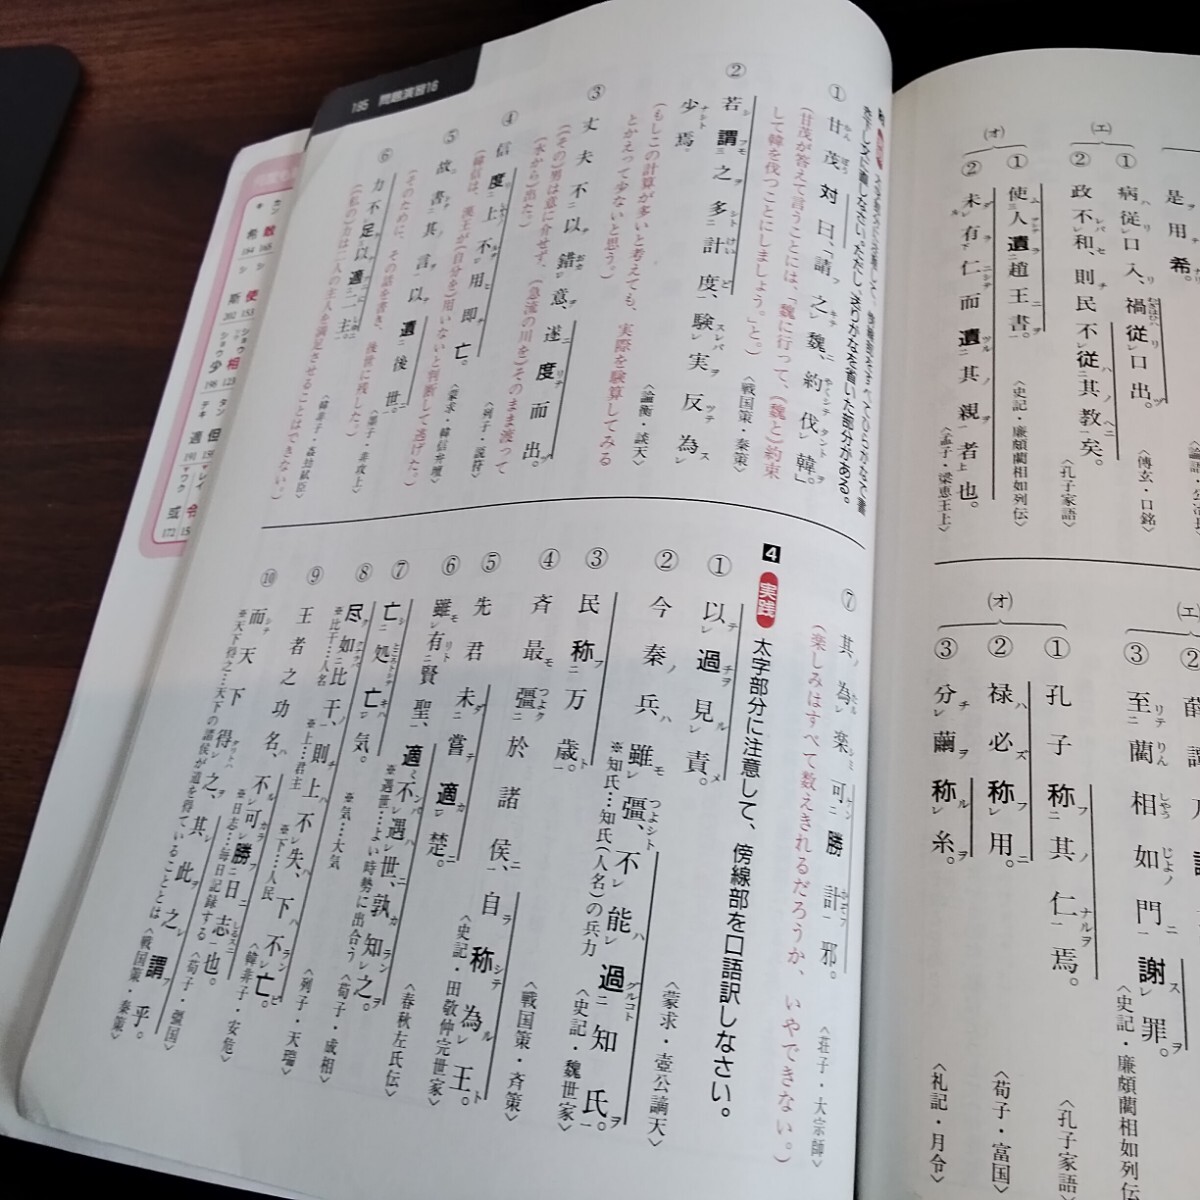 是用希。
㈓
① 病従口入、禍従口出。
〈傅玄・口銘〉
② 政不和、則民不従其教矣。
〈孔子家語〉
㈔
① 使人遺趙王書。
〈史記・廉頗藺相如列伝〉
② 未有仁而遺其親者也。
〈孟子・梁恵王上〉
③ 至藺相如門謝罪。
〈史記・廉頗藺相如列伝〉
(オ)
① 孔子称其仁焉。
〈孔子家語〉
② 禄必称用。
〈荀子・富国〉
③ 分繭称糸。
〈礼記・月令〉
195 問題演習16
① 甘茂対曰、「請之魏、約伐韓」
(甘茂が答えて言うことには、「魏に行って、(魏と)約束
して韓を伐つことにしましょう。」と。)
〈戦国策・秦策〉
② 若謂之多計度、験実反為
少焉。
(もしこの計算が多いと考えても、実際を験算してみる
とかえって少ないと思う。)
〈論衡・談天〉
③ 丈夫不以錯意、遂度而出。
(その男は意に介せず、(急流の川を)そのまま渡って
(水から)出た。)
〈列子・説符〉
④ 信度上不用即亡。
(韓信は、漢王が(自分を)用いないと判断して逃げた。)
〈蒙求・韓信升壇〉
⑤ 故書其言以遺後世。
(そのために、その話を書き、後世に残した。)
〈墨子・非攻上〉
⑥ 力不足以適二主。
((私の)力は二人の主人を満足させることはできない。)
〈韓非子・姦劫弑臣〉
⑦ 其為楽可勝計邪。
(楽しみはすべて数えきれるだろうか、いやできない。)
〈荘子・大宗師〉
4 実践 太字部分に注意して、傍線部を口語訳しなさい。
① 以過見責。
〈蒙求・壺公謫天〉
② 今秦兵雖彊、不能過知氏。
※知氏…知氏(人名)の兵力
〈史記・魏世家〉
③ 民称万歳。
〈戦国策・斉策〉
④ 斉最彊於諸侯、自称為王。
〈史記・田敬仲完世家〉
⑤ 先君未嘗適楚。
〈春秋左氏伝〉
⑥ 雖有賢聖、適不遇世、孰知之。
※遇世…よい時勢に出合う
〈荀子・成相〉
⑦ 亡処亡気。
※気…大気
〈列子・天瑞〉
⑧ 尽如比干、則上不失、下不亡。
※比干…人名 ※上…君主 ※下…人民
〈韓非子・安危〉
⑨ 王者之功名、不可勝日志也。
※日志…毎日記録する
〈荀子・彊国〉
⑩ 而天下得之、其此之謂乎。
※天下得之…天下の諸侯が道を得ていることは
〈戦国策・秦策〉
敢 165
希 164
使 153
斯 202
相 123
少 196
但
適 191
令
或 172